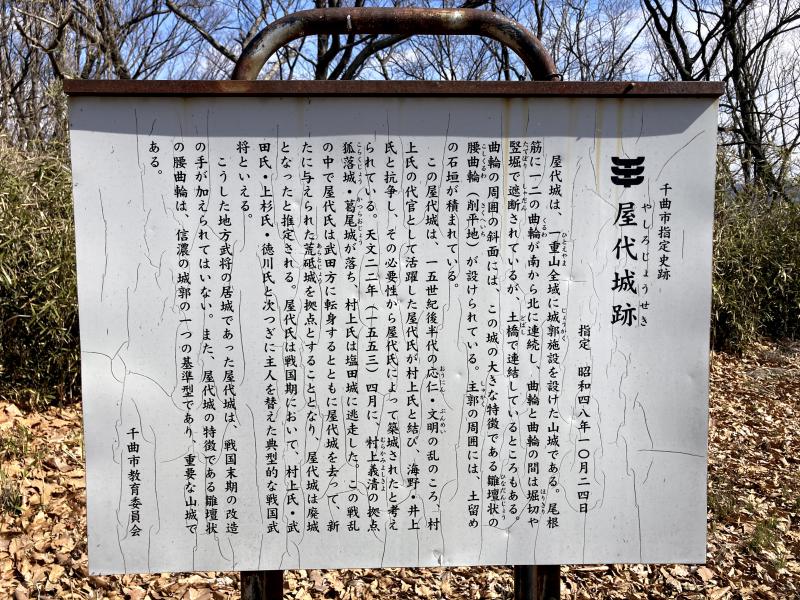 千曲市指定史跡
やしろじょうせき
屋代城跡
指定　昭和四八年一〇月二四日
屋代城は、一重山全域に城郭施設を設けた山城である。尾根
筋に一二の曲輪が南から北に連続し、曲輪と曲輪の間は堀切や
竪堀で遮断されているが、土橋で連結しているところもある。
曲輪の周囲の斜面には、この城の大きな特徴である雛壇状の
腰曲輪（削平地）が設けられている。主郭の周囲には、土留め
の石垣が積まれている。
この屋代城は、一五世紀後半代の応仁・文明の乱のころ、村
上氏の代官として活躍した屋代氏が村上氏と結び、海野・井上
氏と抗争し、その必要性から屋代氏によって築城されたと考え
られている。天文二二年（一五五三）四月に、村上義清の拠点
狐落城・葛尾城が落ち、村上氏は塩田城に逃走した。この戦乱
の中で屋代氏は武田方に転身するとともに屋代城を去って、新
たに与えられた荒砥城を拠点とすることとなり、屋代城は廃城
となったと推定される。屋代氏は戦国期において、村上氏・武
田氏・上杉氏・徳川氏と次つぎに主人を替えた典型的な戦国武
将といえる。
こうした地方武将の居城であった屋代城は、戦国末期の改造
の手が加えられてはいない。また、屋代城の特徴である雛壇状
の腰曲輪は、信濃の城郭の一つの基準型であり、重要な山城で
ある。
千曲市教育委員会